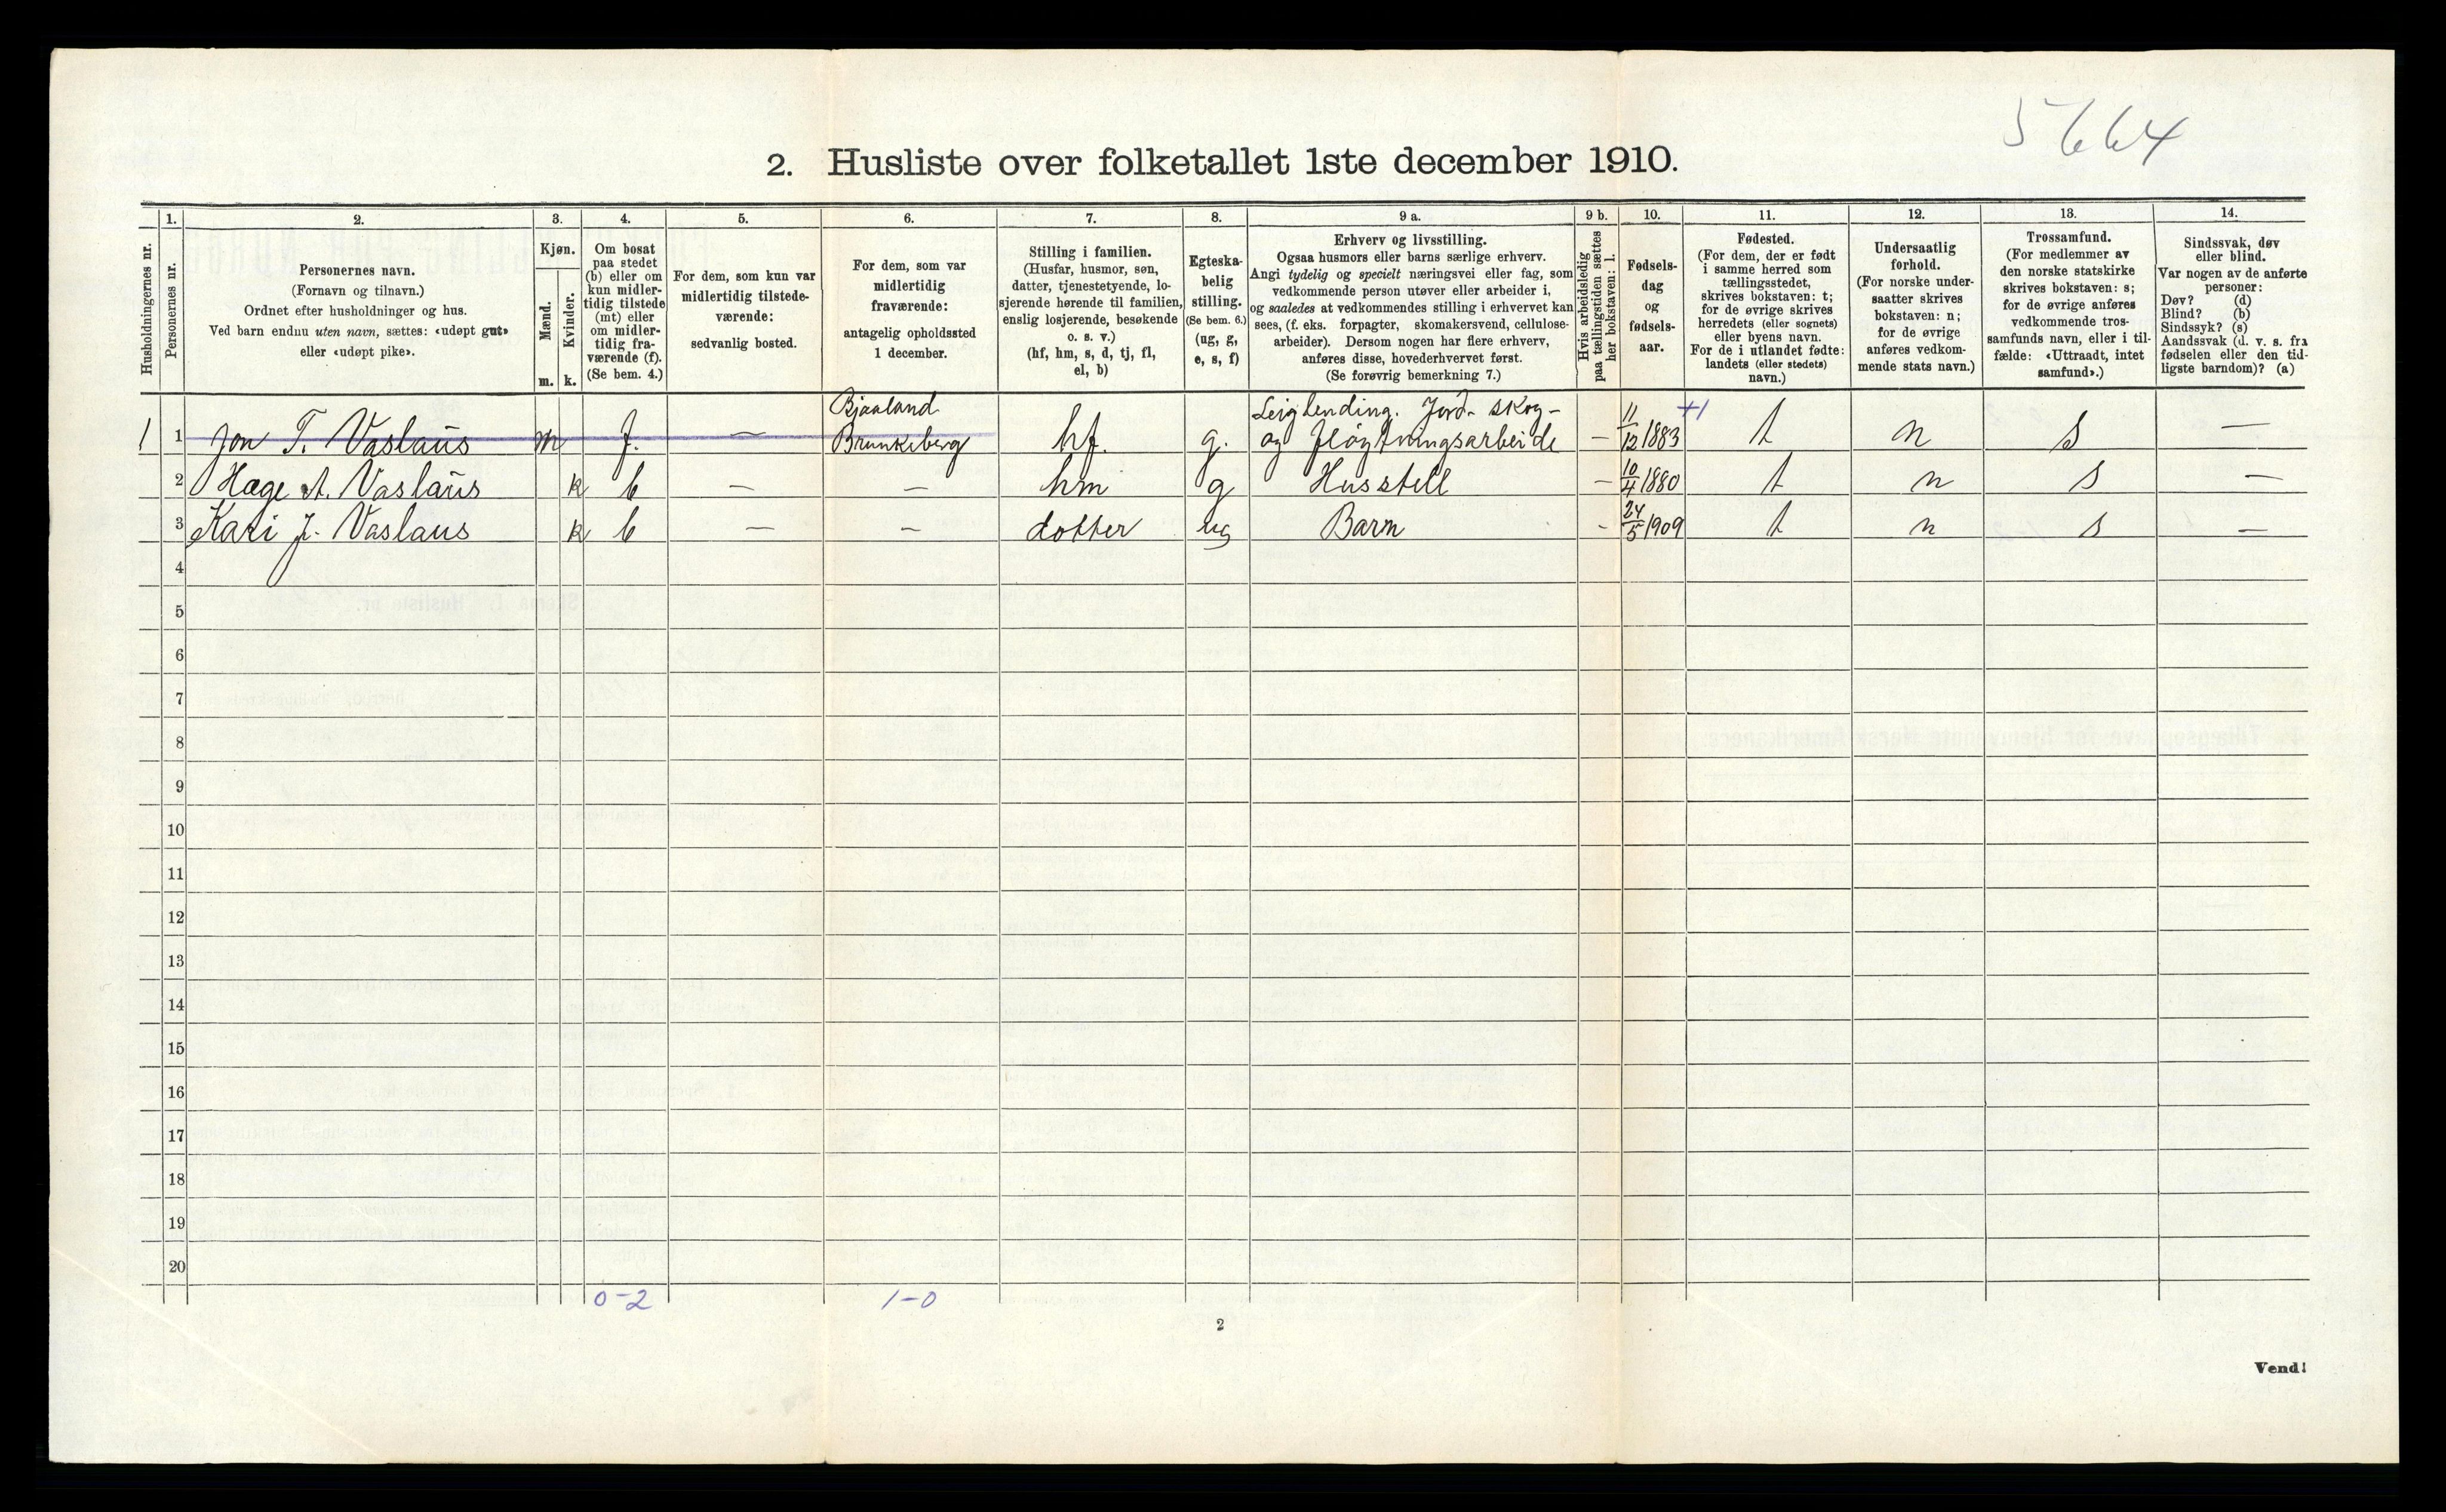 5664
2. Husliste over folketallet 1ste december 1910.
Husholdningernes nr.
1.
Personernes nr.
2.
Personernes navn.
(Fornavn og tilnavn.)
Ordnet efter husholdninger og hus.
Ved barn endnu uten navn, sættes: «udøpt gut»
eller «udøpt pike».
3.
Kjøn.
Mænd.
Kvinder.
m. k.
4.
Om bosat
paa stedet
(b) eller om
kun midler-
tidig tilstede
(mt) eller
om midler-
tidig fra-
værende (f).
(Se bem. 4.)
5.
For dem, som kun var
midlertidig tilstede-
værende:
sedvanlig bosted.
6.
For dem, som var
midlertidig
fraværende:
antagelig opholdssted
1 december.
7.
Stilling i familien.
(Husfar, husmor, søn,
datter, tjenestetyende, lo-
sjerende hørende til familien,
enslig losjerende, besøkende
o. s. v.)
(hf, hm, s, d, tj, fl,
el, b)
8.
Egteska-
belig
stilling.
(Se bem. 6.)
(ug, g,
e, s, f)
9 a.
Erhverv og livsstilling.
Ogsaa husmors eller barns særlige erhverv.
Angi tydelig og specielt næringsvei eller fag, som
vedkommende person utøver eller arbeider i,
og saaledes at vedkommendes stilling i erhvervet kan
sees, (f. eks. forpagter, skomakersvend, cellulose-
arbeider). Dersom nogen har flere erhverv,
anføres disse, hovederhvervet først.
(Se forøvrig bemerkning 7.)
9 b.
Hvis arbeidsledig
paa tællingstiden sættes
her bokstaven: l.
10.
Fødsels-
dag
og
fødsels-
aar.
11.
Fødested.
(For dem, der er født
i samme herred som
tællingsstedet,
skrives bokstaven: t;
for de øvrige skrives
herredets (eller sognets)
eller byens navn.
For de i utlandet fødte:
landets (eller stedets)
navn.)
12.
Undersaatlig
forhold.
(For norske under-
saatter skrives
bokstaven: n;
for de øvrige
anføres vedkom-
mende stats navn.)
13.
Trossamfund.
(For medlemmer av
den norske statskirke
skrives bokstaven: s;
for de øvrige anføres
vedkommende tros-
samfunds navn, eller i til-
fælde: «Uttraadt, intet
samfund».)
14.
Sindssvak, døv
eller blind.
Var nogen av de anførte
personer:
Døv? (d)
Blind? (b)
Sindssyk? (s)
Aandssvak (d. v. s. fra
fødselen eller den tid-
ligste barndom)? (a)
Bjaaland Leiglending. Jord- skog- 11 +1
1 1 Jon T. Vaslaus m f. — Brunkeberg hf. g. og fløytningsarbeide – 12 1883 t n s —
2 Hæge A. Vaslaus k b — — hm g Husstell – 10/4 1880 t n s —
3 Kari J. Vaslaus k b — — dotter ug Barn - 24/5 1909 t n s —
4
5
6
7
8
9
10
11
12
13
14
15
16
17
18
19
20
0-2 1-0
2
Vend!